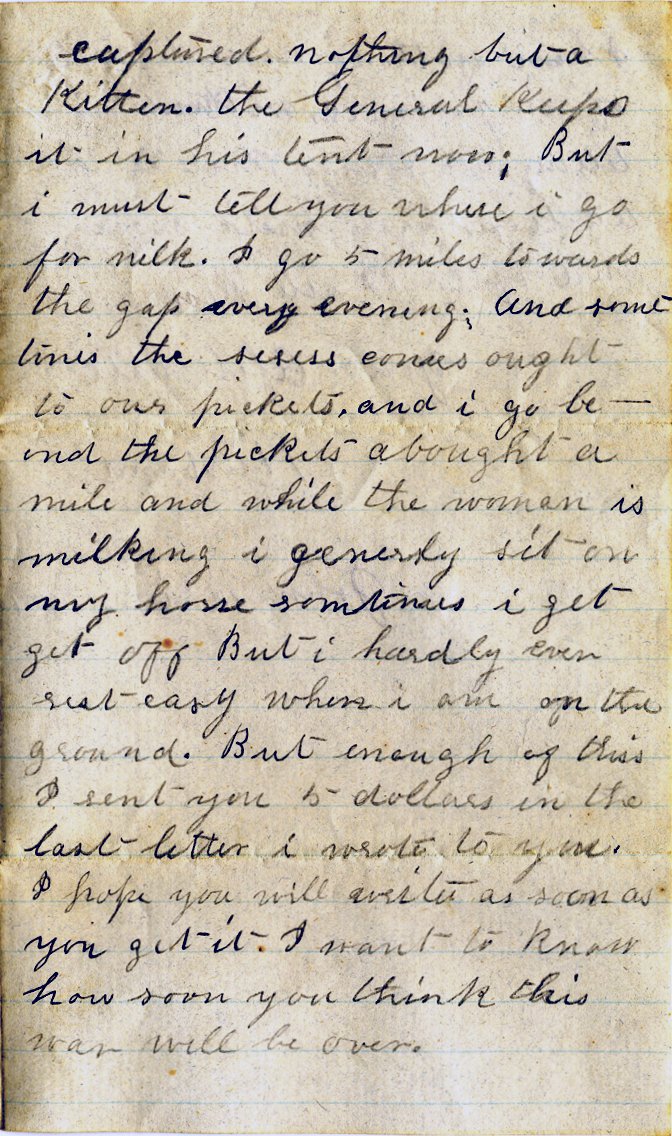 captured. nothing but a
Kitten. the General Keeps
it in his tent now; But
i must tell you where i go
for milk. I go 5 miles towards
the gap every evening; And some
times the sesess comes ought
to our pickets, and i go be—
ond the pickets abought a
mile and while the woman is
milking i generly sit on
my horse somtimes i get
get off But i hardly ever
rest easy when i am on the
ground. But enough of this
I sent you 5 dollars in the
last letter i wrote to you.
I hope you will write as soon as
you get it. I want to know
how soon you think this
war will be over.